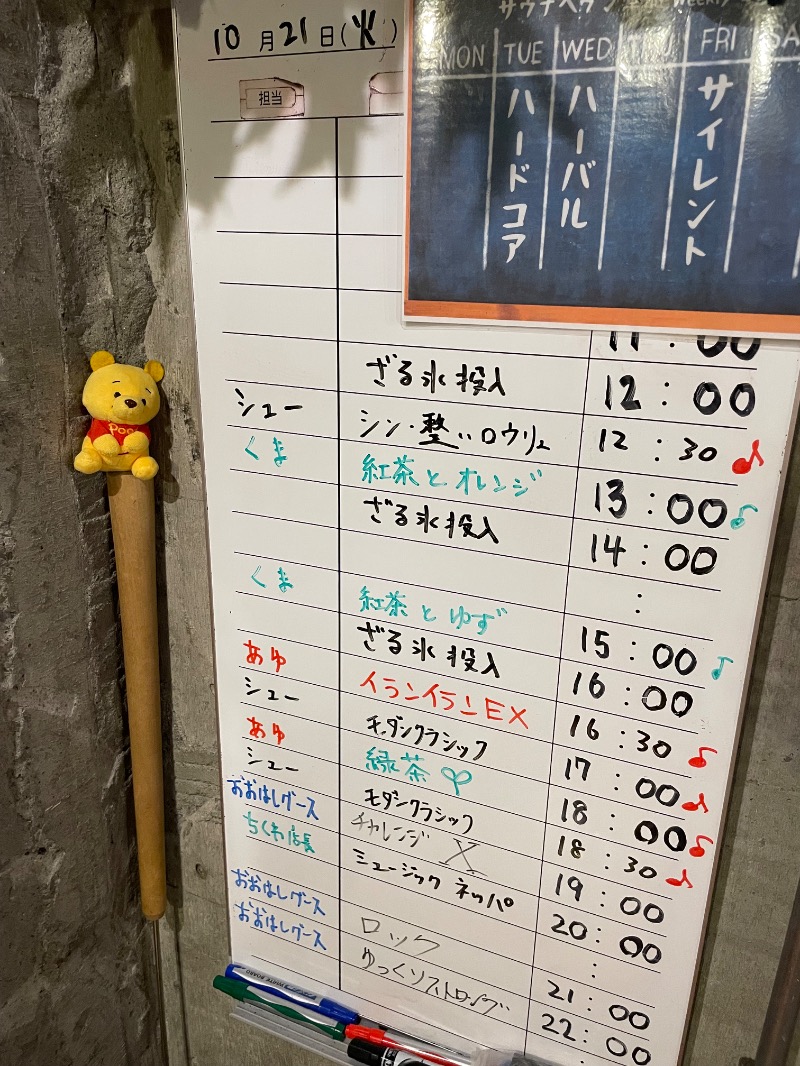 10月21日(火)
担当
MON TUE WED THU FRI SA
ハードコア
ハーバル
サイレント
11:00
ざる氷投入 12:00
シュー シン・整いロウリュ 12:30♪
くま 紅茶とオレンジ 13:00♪
ざる氷投入 14:00
:
くま 紅茶とゆず 15:00♪
ざる氷投入 16:00
あゆ イランイランEX 16:30♪
シュー モダンクラシック 17:00♪
あゆ 緑茶 18:00♪
シュー モダンクラシック 18:30♪
おおはしグース チャレンジX 19:00
ちくわ店長 ミュージックネッパ 20:00
:
おおはしグース ロック 21:00
おおはしグース ゆっくりストロング 22:00
:
Poo
WHITE BOARD